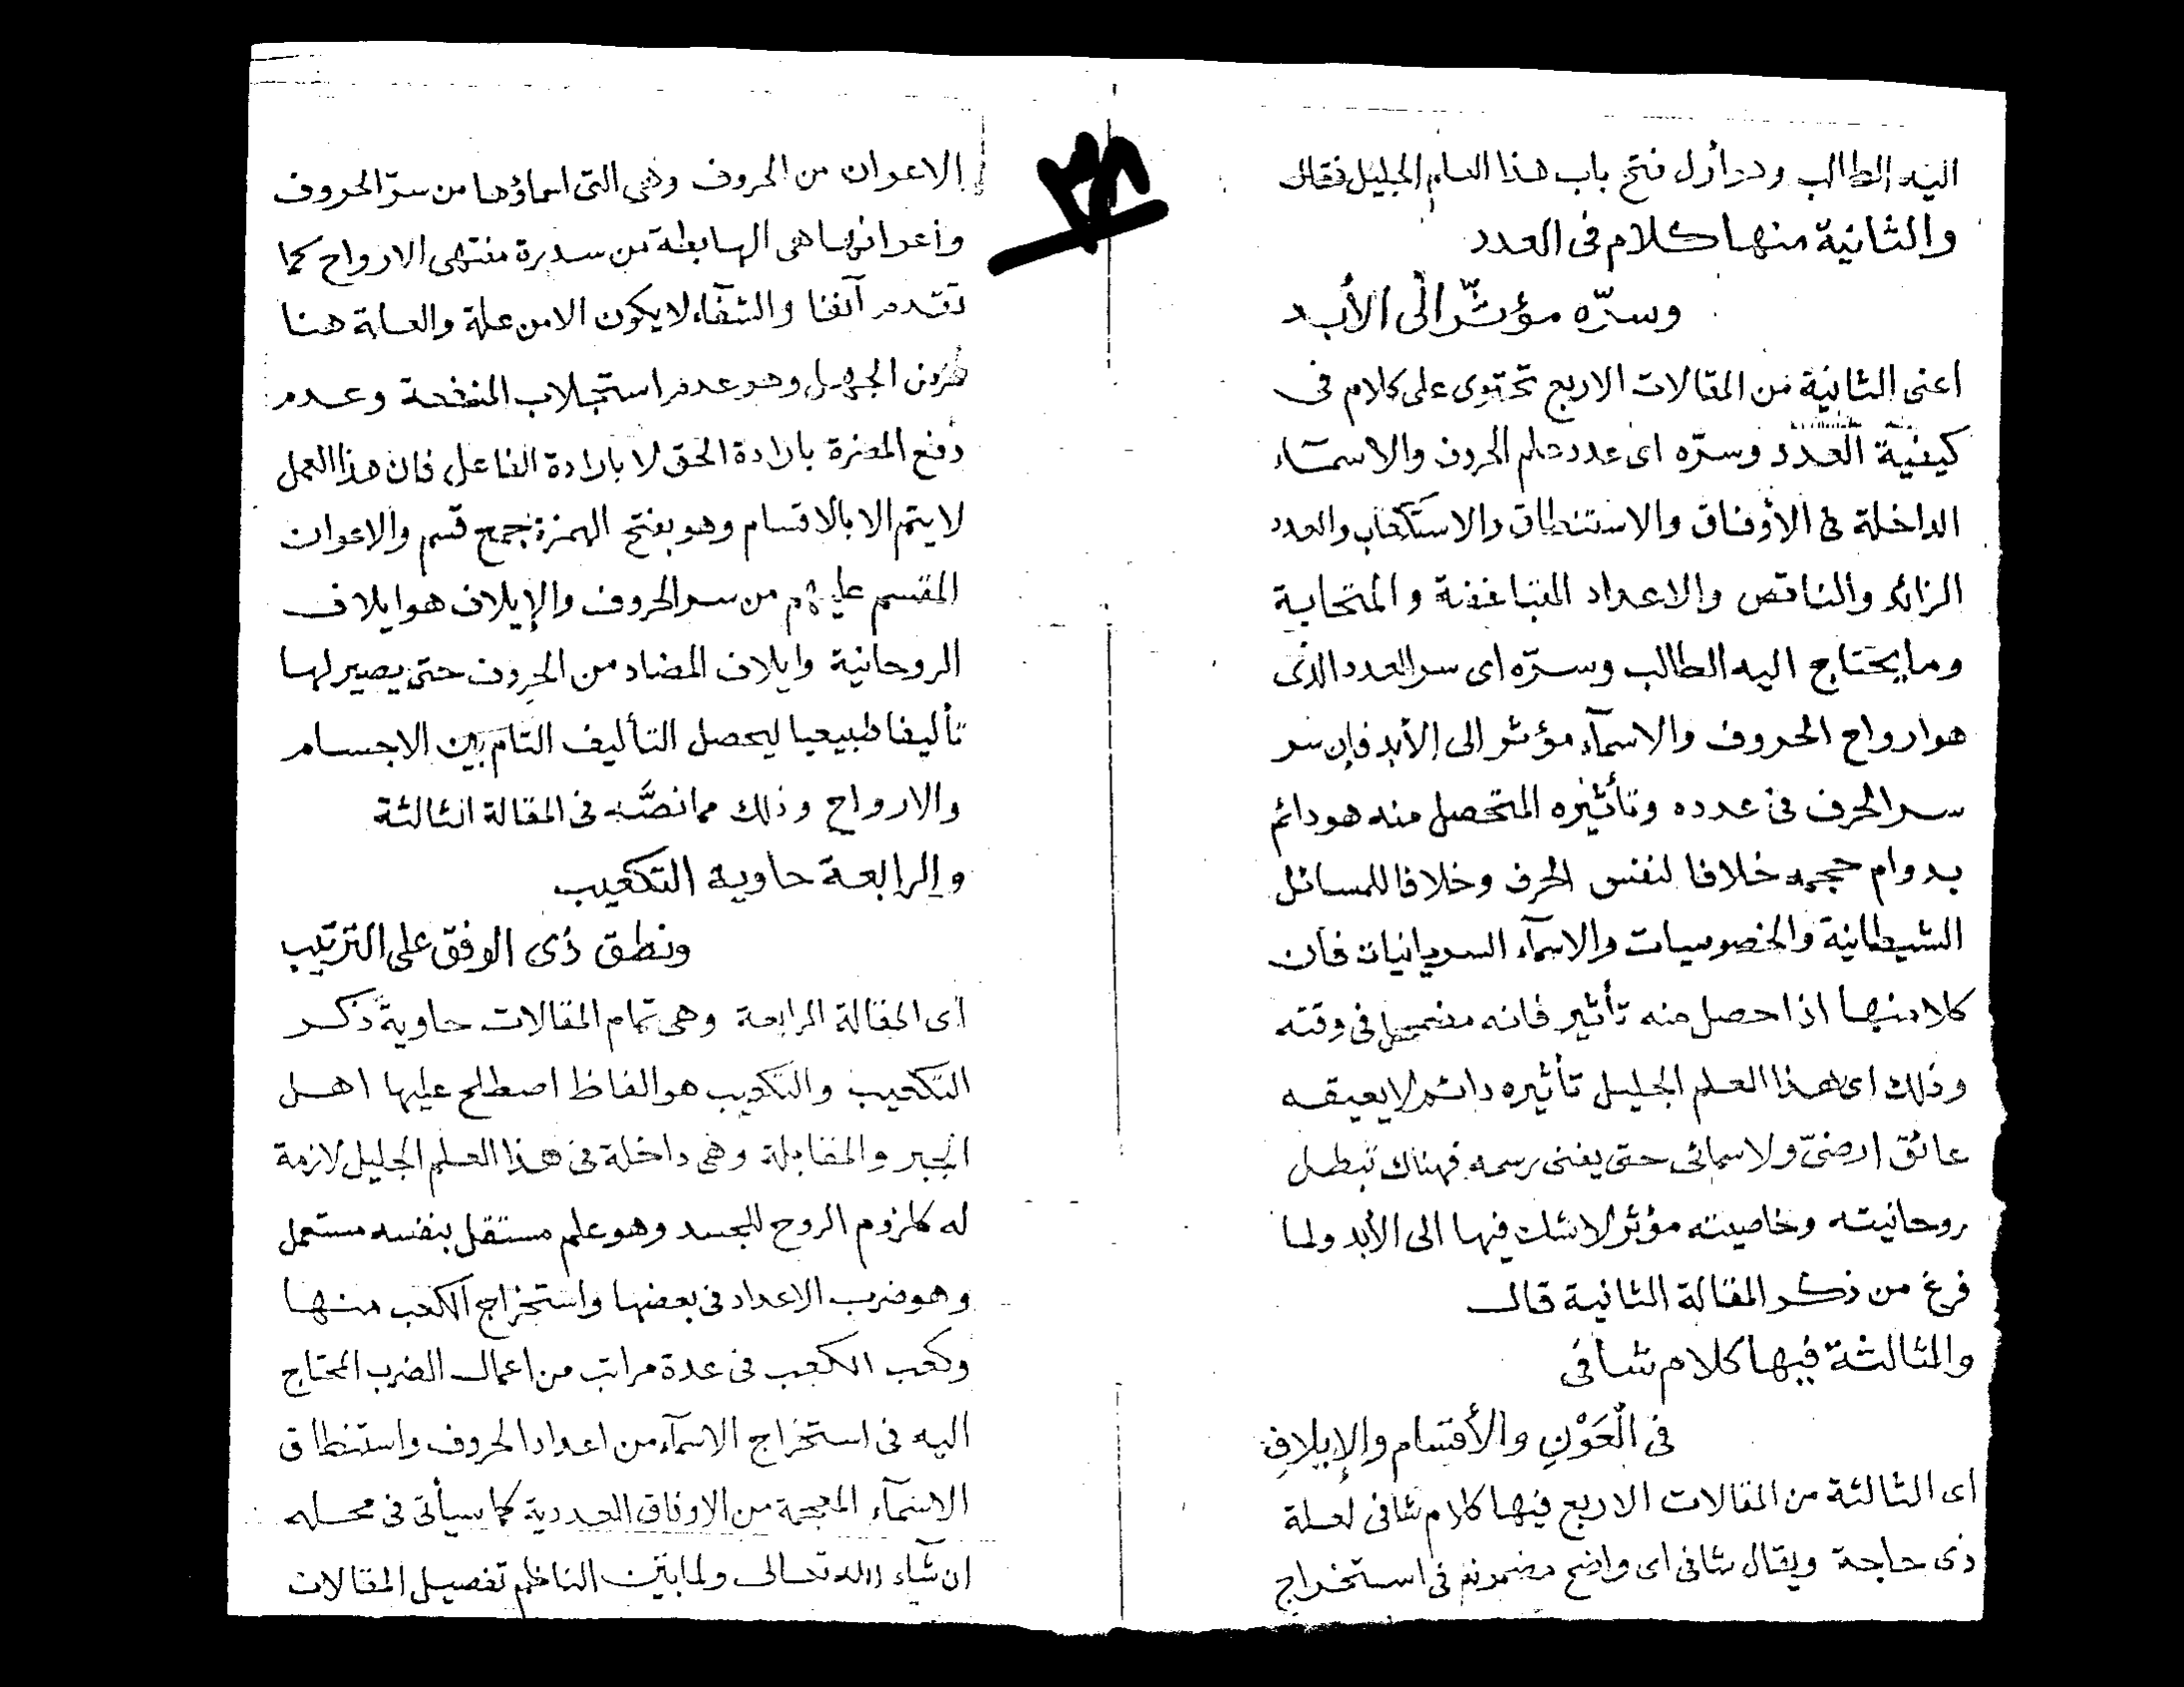 اليه الطالب وهو أول فتح باب هذا العلم الجليل فقال
والثانية منها كلام فى العدد
وسرّه مؤثّر الى الأبد
اعنى الثانية من المقالات الاربع تحتوى على كلام فى
كيفية العدد وسرّه اى عدد علم الحروف والاسمآء
الداخلة فى الأوفاق والاستنطاق والاستكعاب والعدد
الزائد والناقص والاعداد المتباغضة والمتحابة
وما يحتاج اليه الطالب وسرّه اى سر العدد الذى
هو ارواح الحروف والاسمآء مؤثر الى الأبد فإن سر
سر الحرف فى عدده وتأثيره المتحصل منه هو دائم
بدوام حجمه خلافا لنفس الحرف وخلافا للمسائل
الشيطانية والخصوصيات والاسمآء السريانيات فان
كلا منها اذا حصل منه تأثير فانه مضمحل فى وقته
وذلك اى هذا العلم الجليل تأثيره دائم لا يعيقه
عائق ارضىّ ولا سمائى حتى يفنى رسمه فهناك تبطل
روحانيته وخاصيته مؤثر لا شك فيها الى الأبد ولما
فرغ من ذكر المقالة الثانية قال
والثالثة فيها كلام شافى
فى الْعَوْنِ والأقسام والإيلافِ
اى الثالثة من المقالات الاربع فيها كلام شافى لعلة
ذى حاجة ويقال شافى اى واضح مضمونه فى استخراج
٣٨
الاعوان من الحروف وهى التى اسماؤها من سرّ الحروف
وأعوانها هى الهابطة من سدرة منتهى الارواح كما
تقدم آنفا والشفآء لا يكون الا من علة والعلة هنا
الجهل وهو عدم استجلاب المنفعة وعدم
دفع المضرة بارادة الحق لا بارادة الفاعل فان هذا العمل
لا يتم الا بالاقسام وهو بفتح الهمزة جمع قسم والاعوان
المقسم عليهم من سر الحروف والإيلاف هو ايلاف
الروحانية وايلاف المضاد من الحروف حتى يصير لها
تأليفا طبيعيا ليحصل التأليف التام بين الاجسام
والارواح وذلك مما نصَّه فى المقالة الثالثة
والرابعة حاوية التكعيب
ونطق ذى الوفق على الترتيب
اى المقالة الرابعة وهى تمام المقالات حاوية ذكر
التكعيب والتكعيب هو الفاظ اصطلح عليها اهل
الجبر والمقابلة وهى داخلة فى هذا العلم الجليل لازمة
له كلزوم الروح للجسد وهو علم مستقل بنفسه مستعمل
وهو ضرب الاعداد فى بعضها واستخراج الكعب منها
وكعب الكعب فى عدة مراتب من اعمال الضرب المحتاج
اليه فى استخراج الاسمآء من اعداد الحروف واستنطاق
الاسمآء المعجمة من الاوفاق العددية كما سيأتى فى محله
ان شآء الله تعالى ولما بيّن الناظم تفصيل المقالات